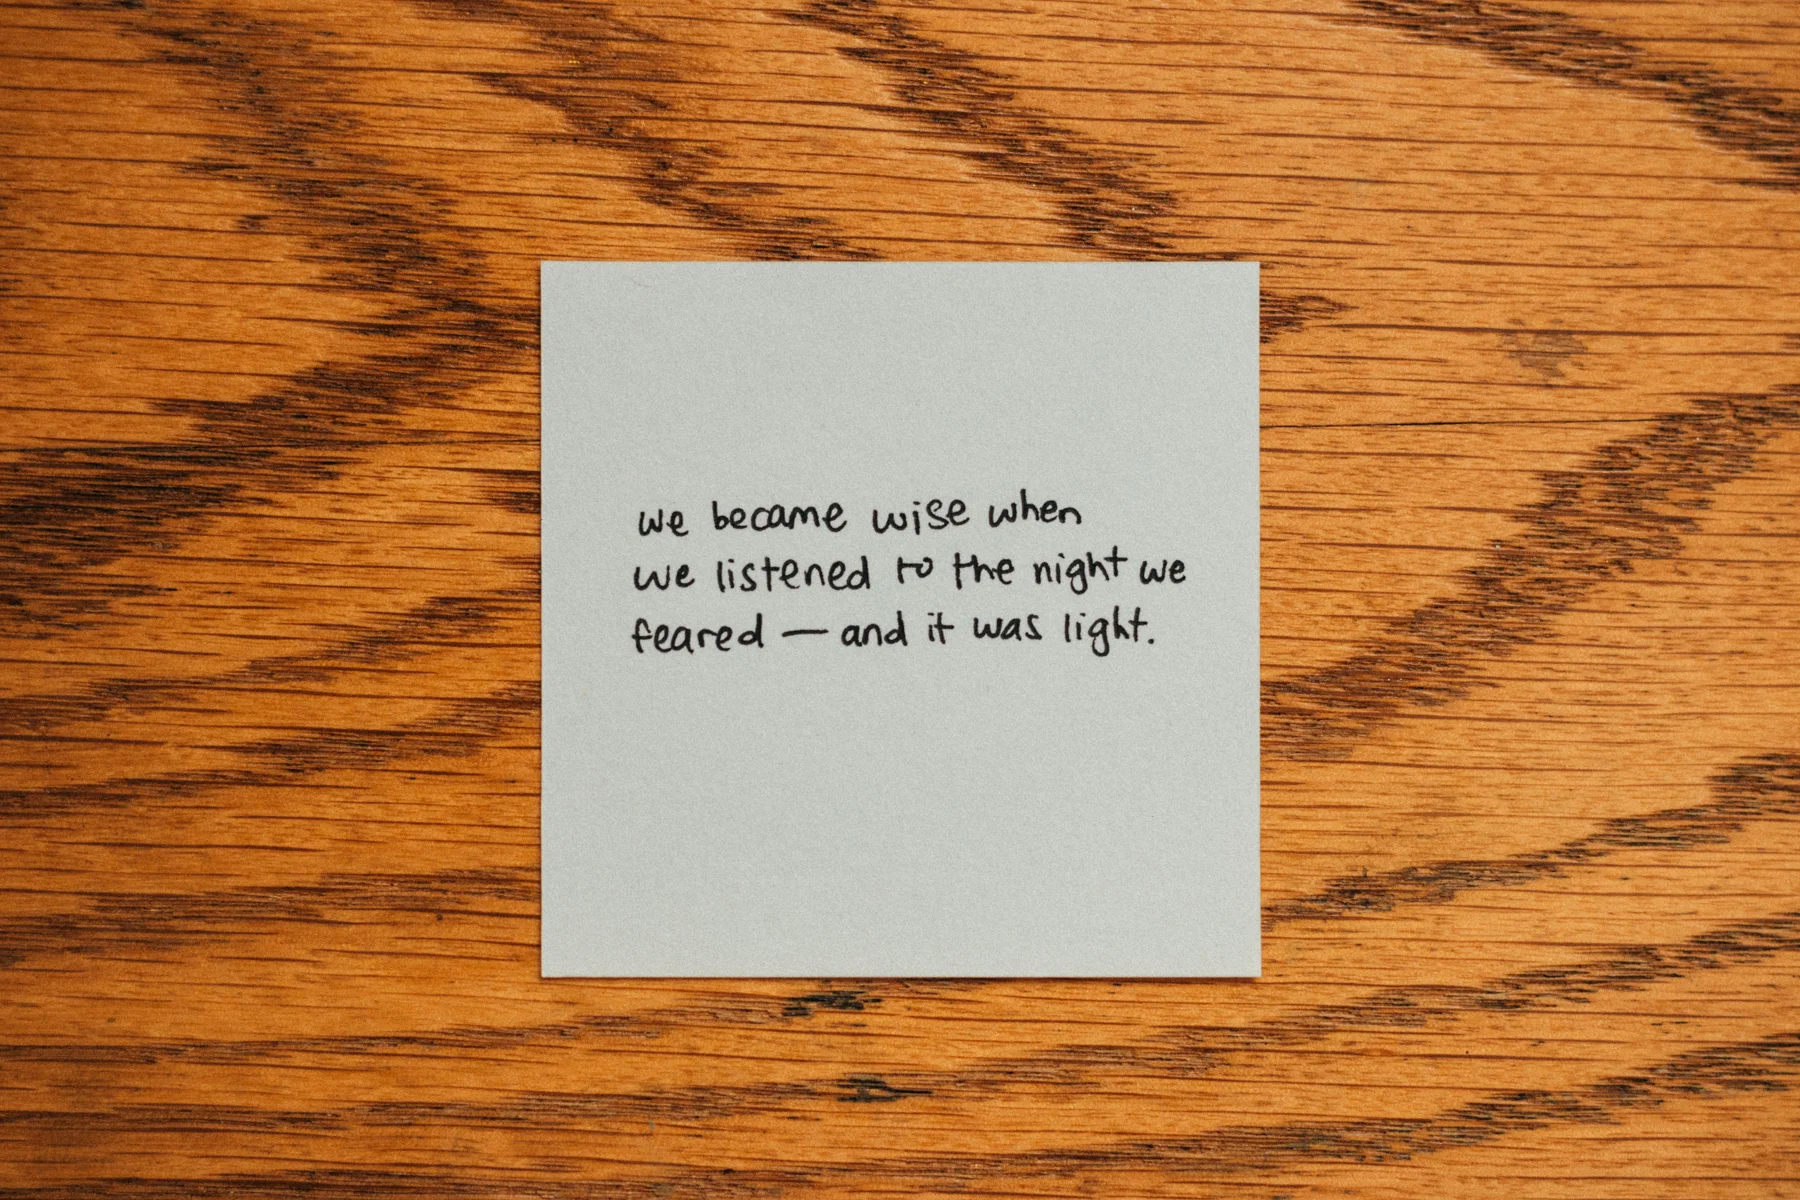 we became wise when
we listened to the night we
feared — and it was light.